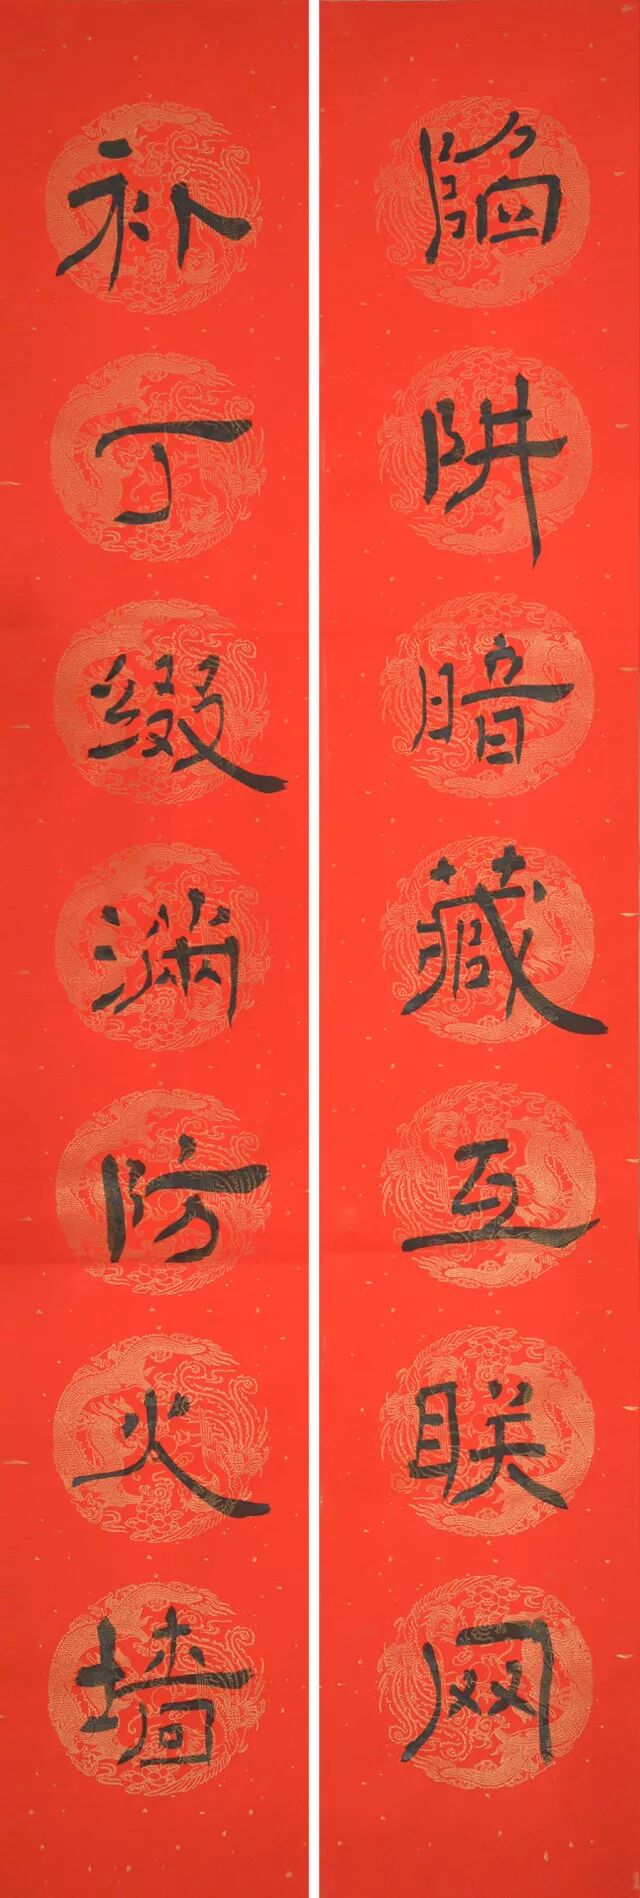 陷阱暗藏互联网
补丁缀满防火墙